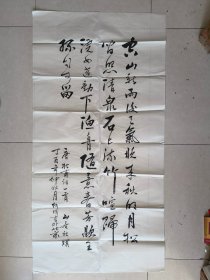 空山新雨後天氣晚来秋明月松
間照清泉石上流竹喧歸
浣女蓮動下漁舟隨意春芳歇王
孫自可留
山居秋暝
丁酉年